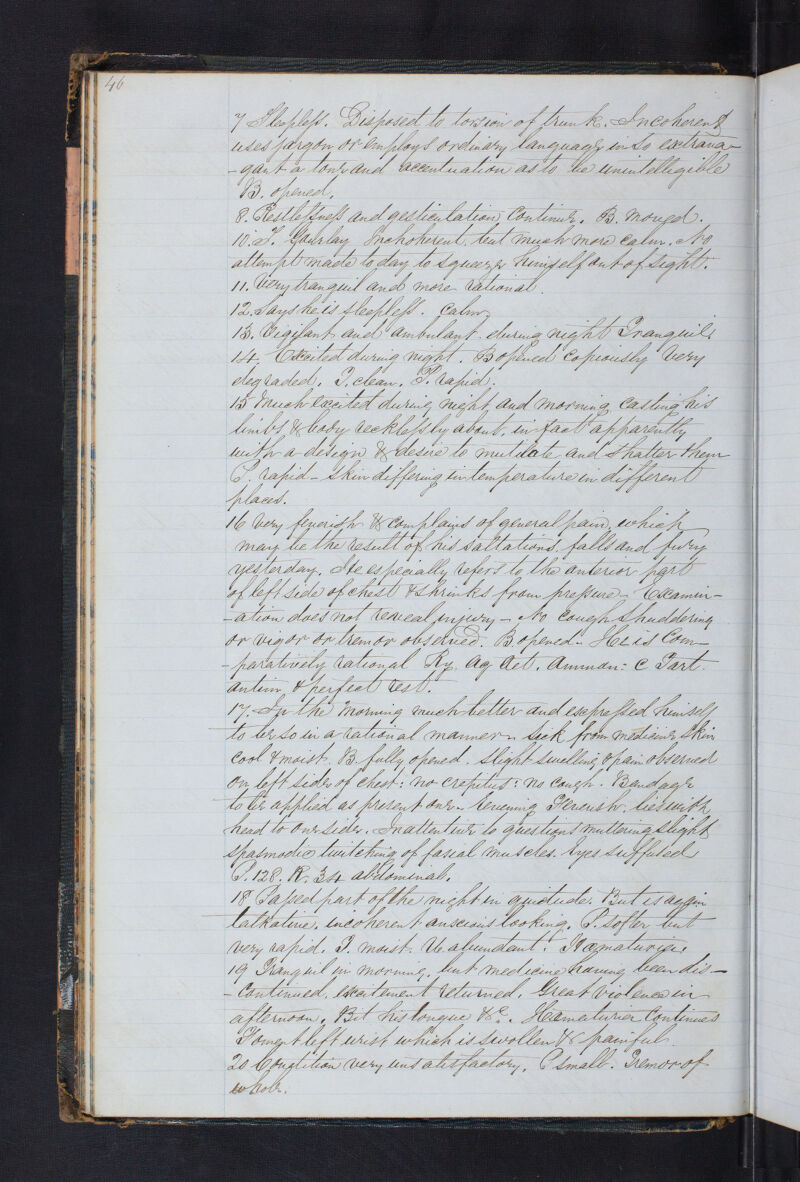 46
7 Sleepless. Disposed to torsion of trunk. Incoherent &
uses jargon or employs ordinary language in so extrava-
-gant a tone and accentuation as to be unintelligible
B. opened.
8. Restlessness and gesticulation continue. B. moved.
10. Incoherent but much more calm. No
attempt made to day to squeeze himself out of sight.
11. Very tranquil and more rational.
12. Says he is sleepless. Calm,
13. Vigilant and ambulant during night Tranquil.
14. Excited during night. B opened copiously Very
degraded. T. clean. P. rapid.
15 Much excited during night, and morning casting his
limbs & body recklessly about, in fact apparently
with a design & desire to mutilate and shatter them
P. rapid - Skin differing in temperature in different
places.
16 Very feverish & complains of general pain, which
may be the result of his saltations, falls and fury
yesterday. He especially refers to the anterior part
of left side of chest & shrinks from pressure - Examin-
-ation does not reveal injury - No cough shuddering
or rigor or tremor observed. B opened. He is com-
-paratively rational Ry. Aq Act. Ammon: c Tart.
antim & perfect rest.
17. In the morning much better and expressed himself
to be so in a rational manner. sick from medicine Skin
cool & moist. B. fully opened. Slight swelling & pain observed
on left side of chest: no crepitus: no cough. Bandage
to be applied as present one. Evening Feverish. lies with
head to one side. Inattentive to questions muttering slight
spasmodic twitching of facial muscles. Eyes suffused
P. 128. R. 34 abdominal.
18 Passed part of the night in quietude. But is again
talkative, incoherent anxious looking. P. softer but
very rapid. T. moist. U abundant. Haematuria.
19 Tranquil in morning, but medicine having been dis-
-continued, excitement returned. Great violence in
afternoon. Bit his tongue &c. Hematuria continued
Foment left wrist which is swollen & painful.
20 Condition very unsatisfactory. P small. Tremor of
whole.